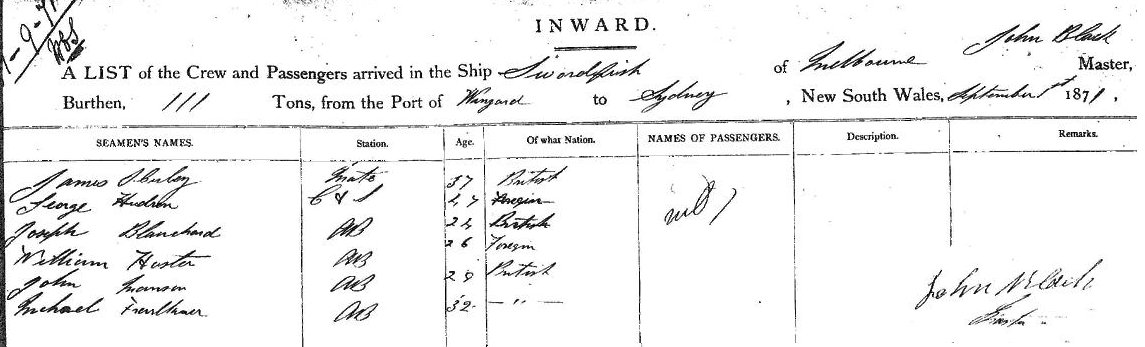 1-9-71
INWARD.
John Black
A LIST of the Crew and Passengers arrived in the Ship Swordfish of Melbourne Master,
Burthen, 111 Tons, from the Port of to Sydney, New South Wales, September 1st 1871,
SEAMEN'S NAMES. Station. Age. Of what Nation. NAMES OF PASSENGERS. Description. Remarks.
James Mate 37 British
George Hudson C & S Foregin
Joseph Blanchard AB 24 British
William AB 26 Foregin
John AB British
Michael AB 32 - " -
nil
John Black
Master